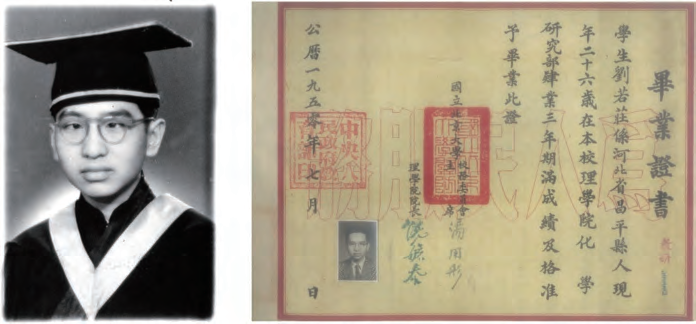 畢業證書
學生劉若莊係河北省昌平縣人現
年二十六歲在本校理學院化學
研究部肆業三年期滿成績及格准
予畢業此證
國立北京大學校務委員會
主席湯用彤
理學院院長饒毓泰
公曆一九五零年七月 日
為人民服務